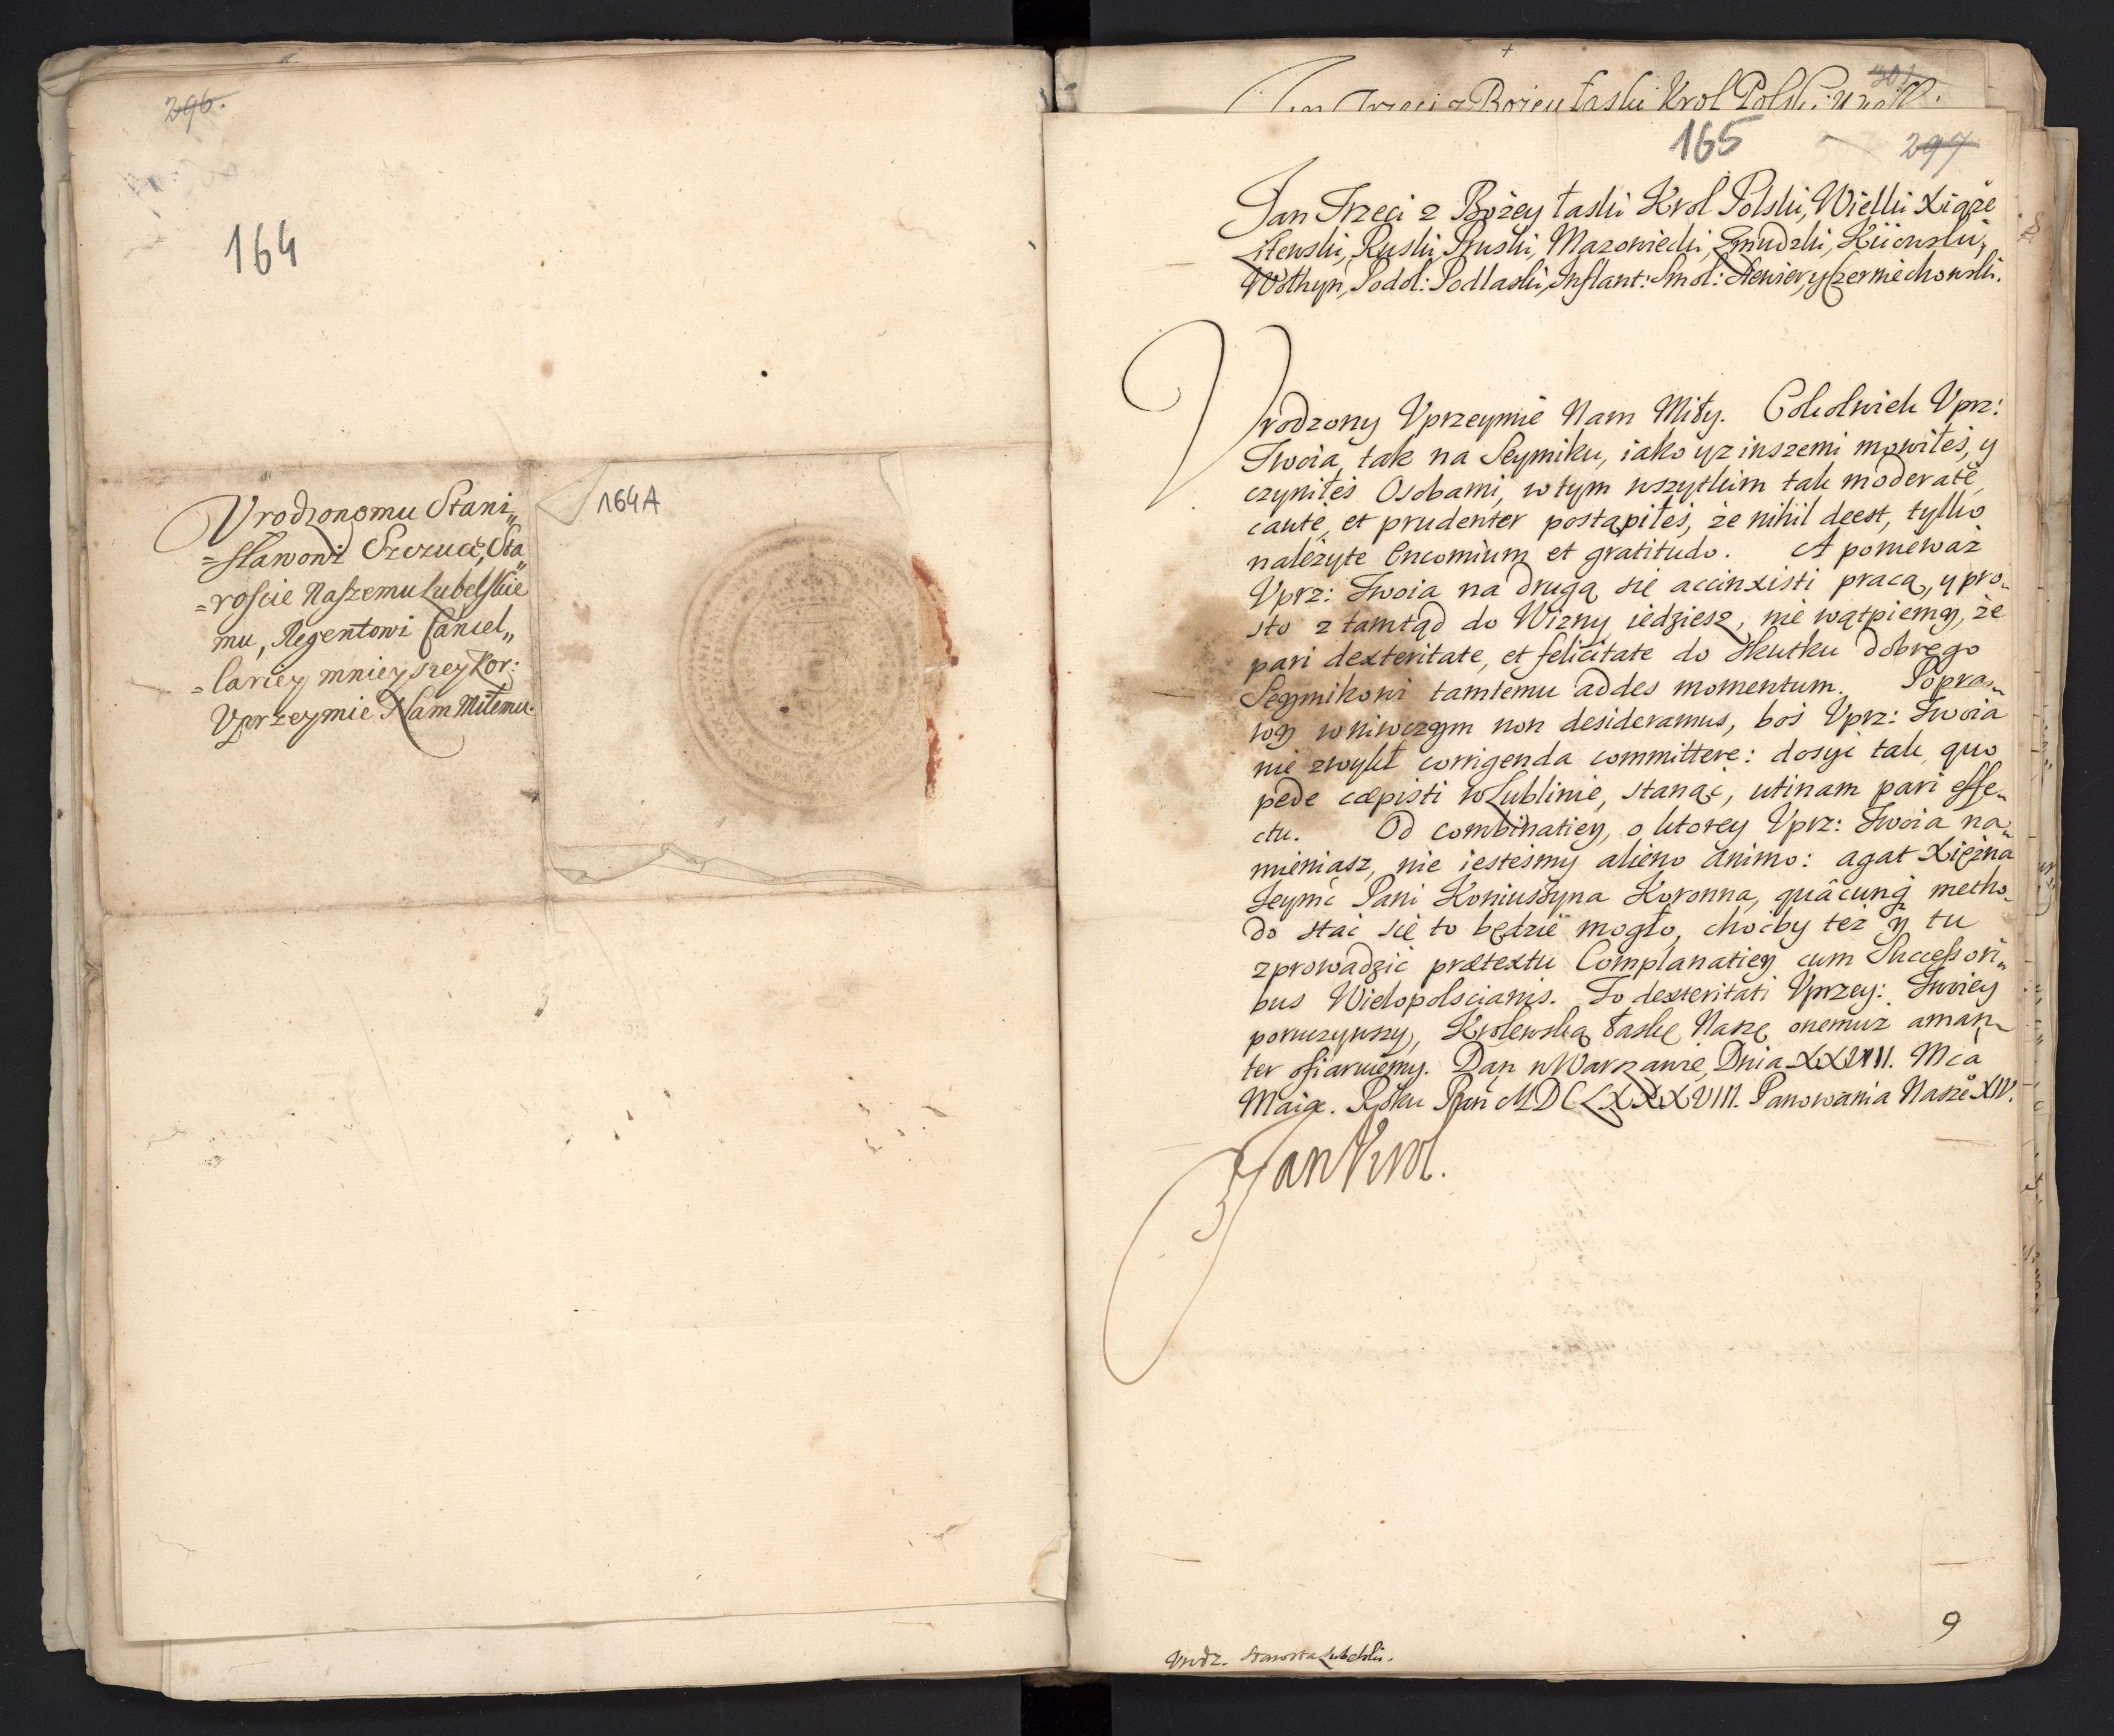 296.
164
Vrodzonemu Stani„
=sławowi Szczuce, Sta„
=roscie Naszemu Lubelskie
mu, Regentowi Cancel„
=lariey mnieyszey Kor:
Vprzeymie Nam Miłemu.
164A
301
Jan Trzeci z Bożey łaski Krol Polski, W
165
297
Jan Trzeci z Bożey łaski Krol Polski, Wielki Xiąże
Litewski, Ruski, Pruski, Mazowiecki, Zmudzki, Kiiowski,
Wołhyń, Podol: Podlaski, Inflant: Smol: Siewier, y Czerniechowski.
Vrodzony Vprzeymie Nam Miły. Cokolwiek Vprz:
Twoia, tak na Seymiku, iako y z inszemi mowiłeś, y
czyniłeś Osobami, w tym wszytkim tak moderatè,
cautè, et prudenter postąpiłeś, że nihil deest, tylko
należyte Encomium et gratitudo. A ponieważ
Vprz: Twoia na drugą się accinxisti pracą, y pro„
sto z tamtąd do Wizny iedziesz, nie wątpiemy, że
pari dexteritate, et felicitate do skutku dobrego
Seymikowi tamtemu addes momentum. Popra„
wy w niwczym non desideramus, boś Vprz: Twoia
nie zwykł corrigenda committere: dosyć tak, quo
pede cæpisti w Lublinie, stanąć, utinam pari effe„
ctu. Od combinatiey, o ktorey Vprz: Twoia na„
mieniasz, nie iesteśmy alieno animo: agat Xiężna
Jeymć Pani Koniuszyna Koronna, quâcunq; metho„
do stać się to będzie mogło, choćby też y tu
zprowadzić prætextu Complanatiey cum Successori„
bus Wielopolscianis. To dexteritati Vprzey: Twoiey
poruczywszy, Krolewską łaskę Naszę onemuż aman„
ter ofiaruiemy. Dan w Warszawie, Dnia XXVIII. Mca
Maia. Roku Pań MDCLXXXVIII. Panowania Nasze° XIV.
Jan Krol.
9
Vrodz. Starosta Lubelski.